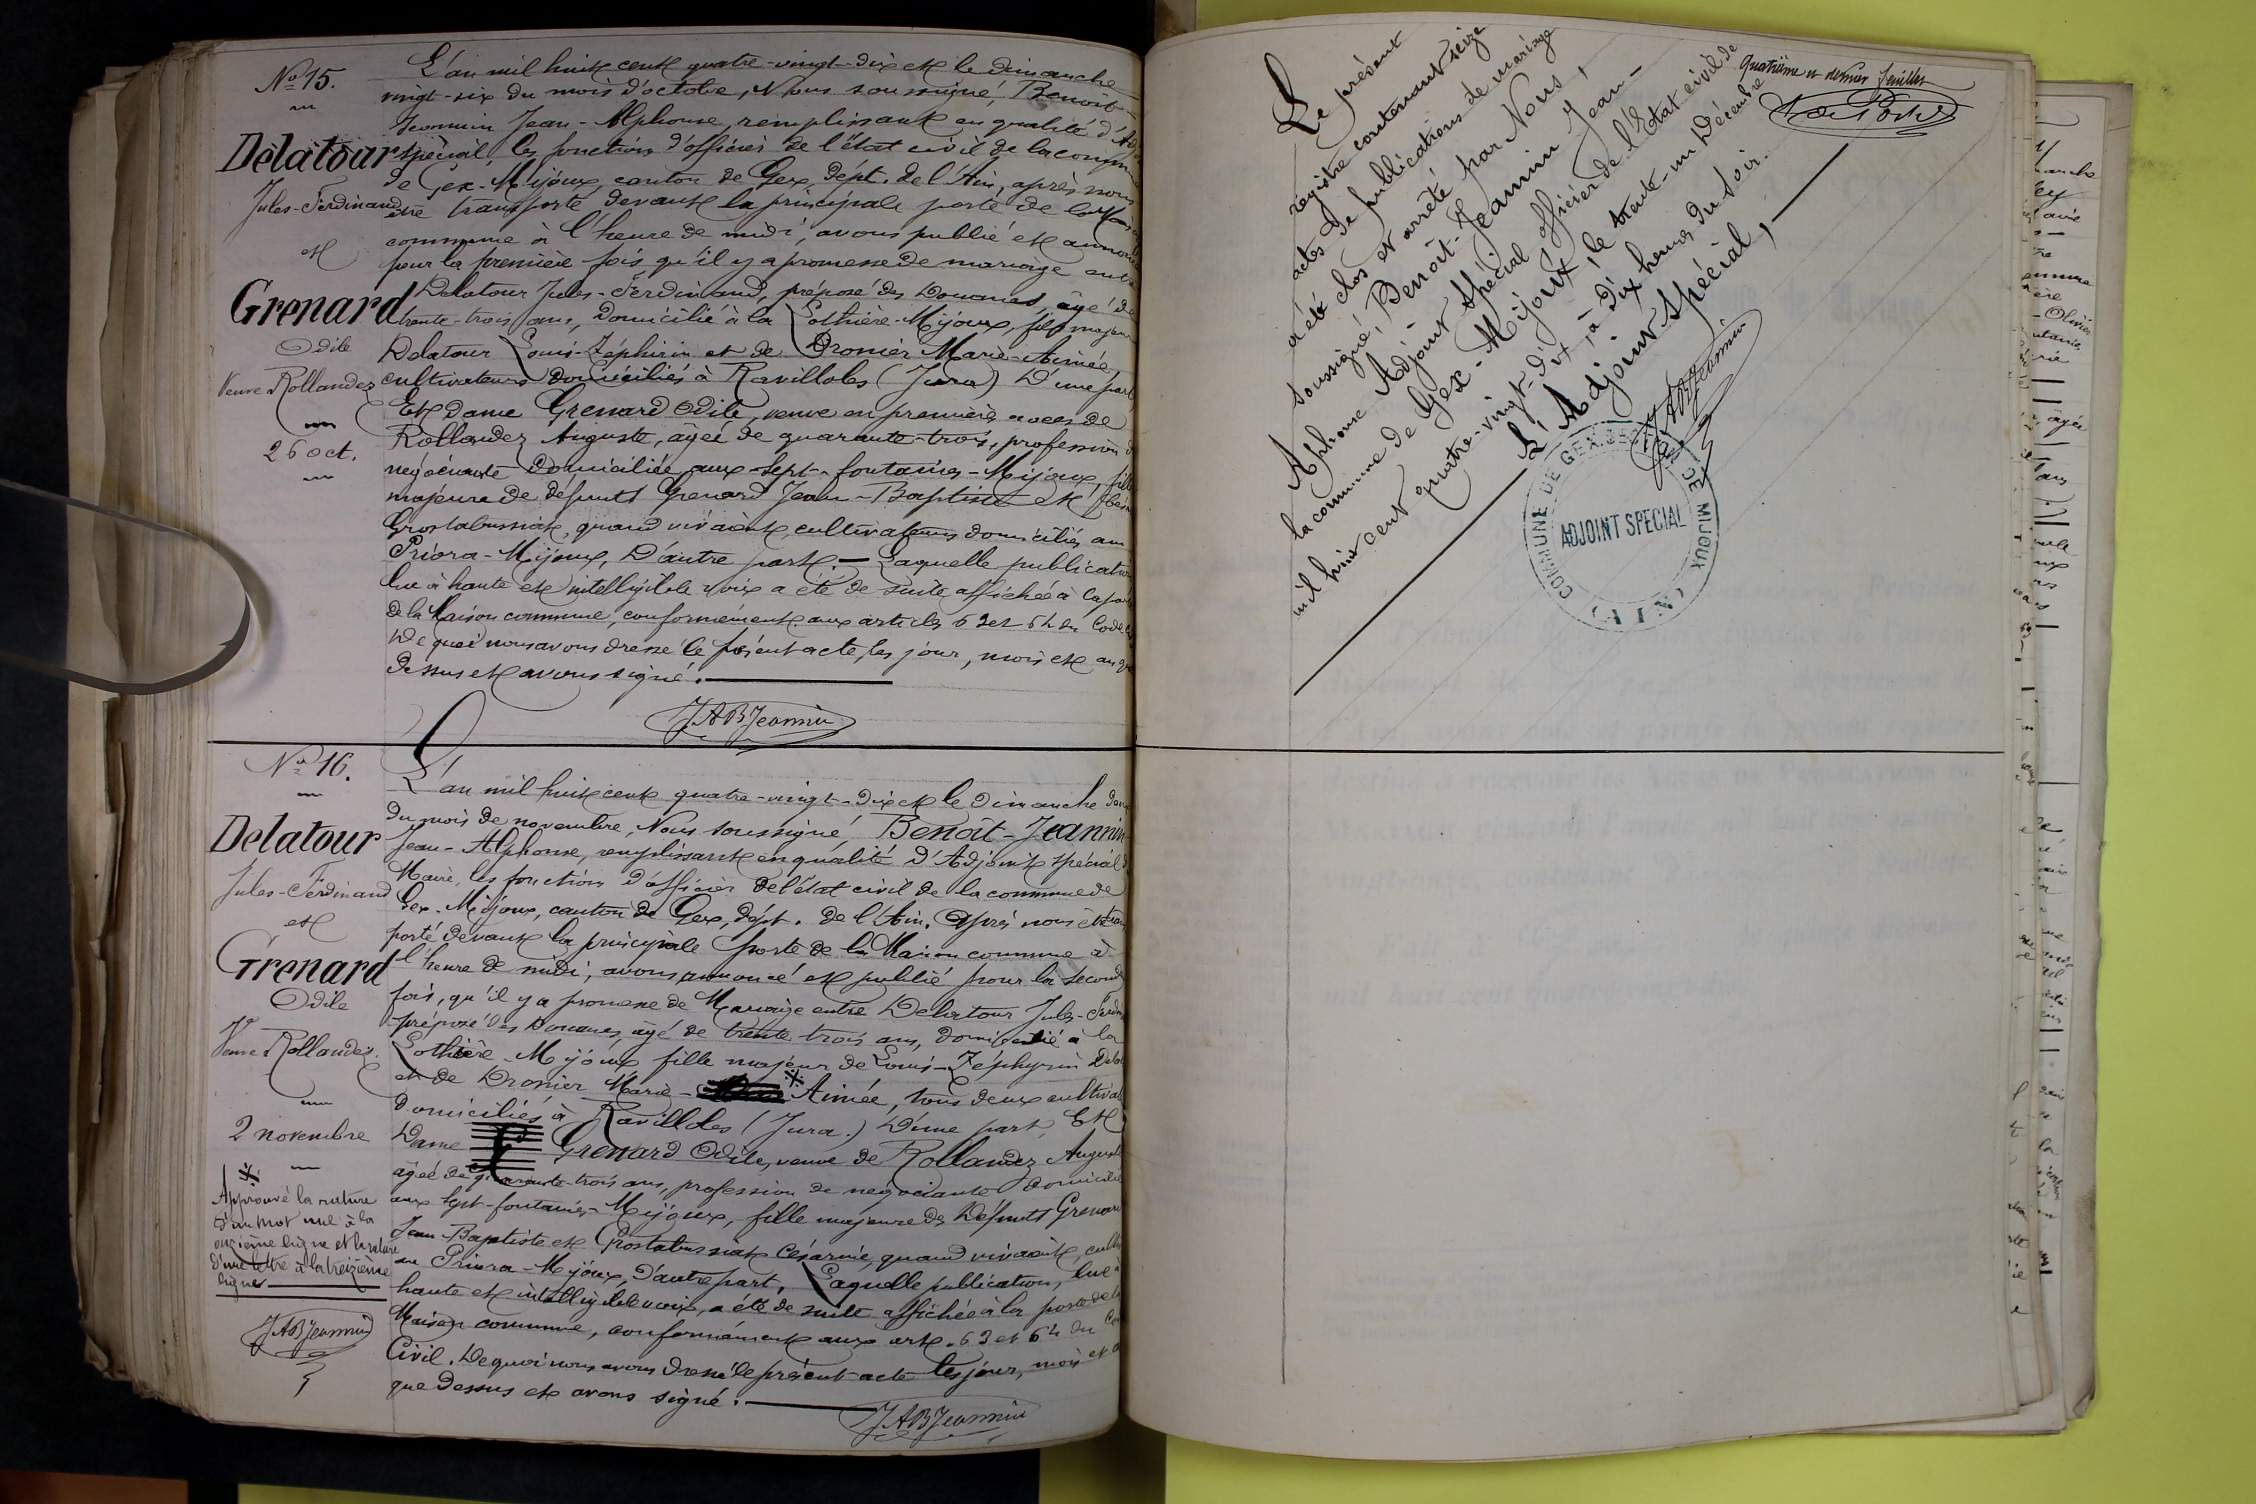 N° 15.
Delatour
Jules-Ferdinand
et
Grenard
Odile
Veuve Rollandez
26 oct.
L'an mil huit cent quatre-vingt-dix et le dimanche
vingt-six du mois d'octobre, Nous soussigné, Benoit-
Jeannin Jean-Alphonse, remplissant en qualité d'Adj
spécial, les fonctions d'officier de l'état civil de la commune
de Gex-Mijoux, canton de Gex, dépt. de l'Ain, après nous
être transporté devant la principale porte de la Maison
commune à l'heure de midi, avons publié et annoncé
pour la première fois qu'il y a promesse de mariage entre
Delatour Jules-Ferdinand, préposé des Douanes, âgé de
trente-trois ans, domicilié à la Lothière-Mijoux, fils majeur
Delatour Louis-Zéphirin et de Dronier Marie-Aimée
cultivateurs domiciliés à Ravilloles (Jura) D'une part
Et dame Grenard Odile, veuve en première noces de
Rollandez Auguste, âgée de quarante-trois, profession d
négociante domiciliée aux Sept-fontaines-Mijoux, fille
majeure de défunts Grenard Jean-Baptiste et
Grostabussiat, quand vivaient, cultivateurs domiciliés au
Priora-Mijoux, D'autre part. — Laquelle publication
lue à haute et intelligible voix a été de suite affichée à la porte
de la Maison commune, conformément aux articles 63 et 64 du Code
De quoi nous avons dressé le présent acte, les jour, mois et an que
dessus et avons signé.
JABJeannin
N° 16.
Delatour
Jules-Ferdinand
et
Grenard
Odile
Veuve Rollandez
2 novembre
Approuvé la rature
d'un mot nul à la
onzième ligne et la rature
d'une lettre à la treizième
ligne
JABJeannin
L'an mil huit cent quatre-vingt-dix et le Dimanche deux
du mois de novembre, Nous soussigné, Benoît-Jeannin
Jean-Alphonse, remplissant en qualité d'Adjoint spécial d
Maire, les fonctions d'officier de l'état civil de la commune de
Gex-Mijoux, canton de Gex, dépt. de l'Ain. Après nous être trans
porté devant la principale porte de la Maison commune à
l'heure de midi, avons annoncé et publié pour la seconde
fois, qu'il y a promesse de Mariage entre Delatour Jules-Ferdin
préposé des Douanes, âgé de trente trois ans, domicilié à la
Lothière-Mijoux fille majeur de Louis-Zéphyrin Delat
et de Dronier Marie- Aimée, tous deux cultivat
domiciliés à Ravilloles (Jura.) D'une part, Et
Dame Grenard Odile, veuve de Rollandez Auguste
âgée de quarante-trois ans, profession de négociante domiciliée
aux Sept-fontaines-Mijoux, fille majeure de Défunts Grenard
Jean-Baptiste et Grostabussiat Césarine, quand vivaient, culti
au Priora-Mijoux, D'autre part, Laquelle publication, lue à
haute et intelligible voix, a été de suite affichée à la porte de la
Maison commune, conformément aux art. 63 et 64 du Code
Civil. De quoi nous avons dressé le présent acte les jour, mois et a
que dessus et avons signé.
JABJeannin
Quatrième et dernier feuillet
Le présent
registre contenant seize
actes de publications de mariage
a été clos et arrêté par Nous,
soussigné, Benoît-Jeannin Jean-
Alphonse Adjoint spécial officier de l'Etat civil de
la commune de Gex-Mijoux, le trente-un Décembre
mil huit cent quatre-vingt-dix, à dix heures du soir.
L'Adjoint spécial,
JABJeannin
COMMUNE DE GEX. SECTION DE MIJOUX
ADJOINT SPECIAL
(AIN)